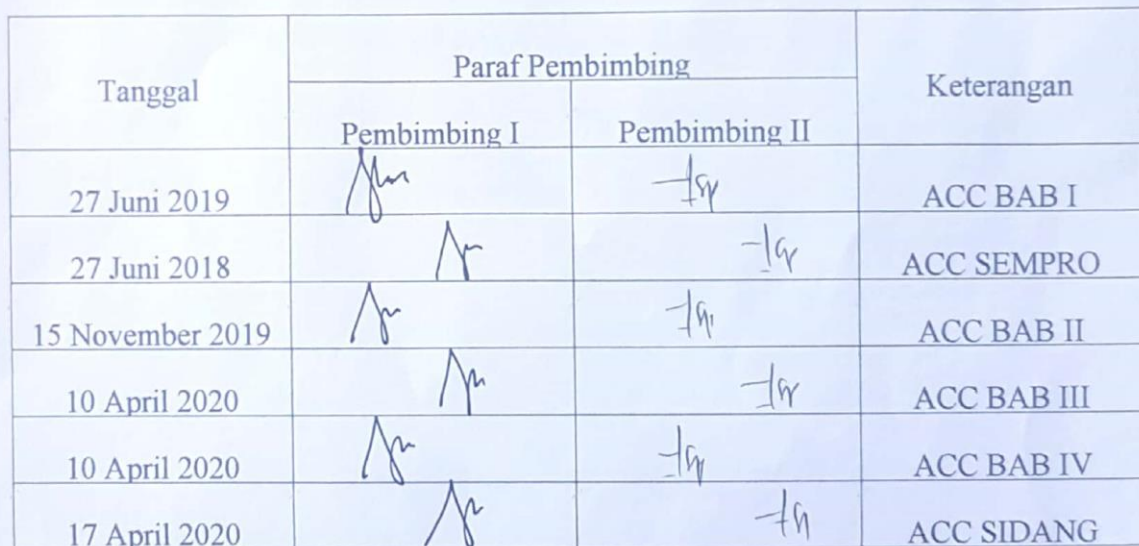 Tanggal Paraf Pembimbing Keterangan
Pembimbing I Pembimbing II
27 Juni 2019 ACC BAB I
27 Juni 2018 ACC SEMPRO
15 November 2019 ACC BAB II
10 April 2020 ACC BAB III
10 April 2020 ACC BAB IV
17 April 2020 ACC SIDANG